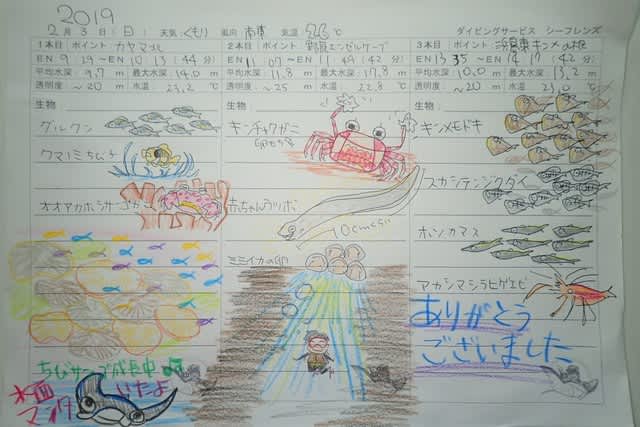 2019
2月3日(日) 天気 くもり 風向 南東 気温 26℃ ダイビングサービス シーフレンズ
1本目 ポイント カヤマ北
EN 9 19 ~EN 10 13 (44分)
平均水深: 9.7m 最大水深: 14.0m
透明度: ~20m 水温: 23.2℃
生物:
グルクン
クマノミちび
オオアカホシサンゴガニ
ちびサンゴが長中
いたよ
水面
マンタ
2本目 ポイント
EN 11 07 ~EN 11 49 (42分)
平均水深: 11.8m 最大水深: 17.8m
透明度: ~25m 水温: 22.8℃
生物:
キンチャクガニ
赤ちゃんウツボ
10cmくらい
ミミイカの卵
3本目 ポイント
EN 13 35 ~EN 14 17 (42分)
平均水深: 10.0m 最大水深: 13.2m
透明度: ~20m 水温: 23.0℃
生物:
キンメモドキ
スカシテンジクダイ
ホソカマス
アカシマシラヒゲエビ
ありがとう
ございました